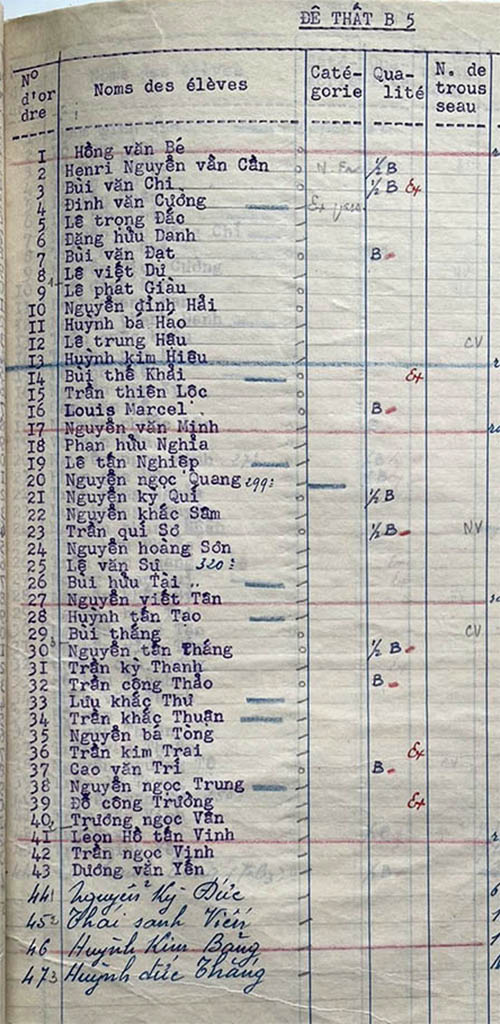 ĐỆ THẤT B 5
Nº d'or dre Noms des élèves Caté- gorie Qua- lité N. de trous seau
I Hồng văn Bé
2 Henri Nguyễn văn Cần ½ B
3 Bùi văn Chi ½ B Ex
4 Đinh văn Cường Ex
5 Lê trọng Đắc
6 Đặng hữu Danh
7 Bùi văn Đạt B
8 Lê việt Dư
9 Lê phát Giàu
IO Nguyễn đình Hải
II Huỳnh bá Hào
I2 Lê trung Hậu CV
I3 Huỳnh kim Hiếu
I4 Bùi thế Khải Ex
I5 Trần thiên Lộc
I6 Louis Marcel B
I7 Nguyễn văn Minh
I8 Phan hữu Nghĩa
I9 Lê tấn Nghiệp
20 Nguyễn ngọc Quang 299:
2I Nguyễn kỳ Qui ½ B
22 Nguyễn khắc Sâm
23 Trần quí Sơ ½ B NV
24 Nguyễn hoàng Sơn
25 Lê văn Sự 320:
26 Bùi hữu Tài
27 Nguyễn viết Tân
28 Huỳnh tấn Tạo
29 Bùi thắng CV
30 Nguyễn tấn Thắng ½ B
3I Trần kỳ Thanh
32 Trần công Thảo B
33 Lưu khắc Thư
34 Trần khắc Thuận
35 Nguyễn bá Tòng
36 Trần kim Trai Ex
37 Cao văn Trí B
38 Nguyễn ngọc Trung
39 Đỗ công Trường Ex
40 Trương ngọc Vân
4I Leon Hồ tấn Vinh
42 Trần ngọc Vịnh
43 Dương văn Yến
44 Nguyễn Kỳ Đức
45 Thái sanh Viến
46 Huỳnh Kim Bảng
47 Huỳnh đức Thắng